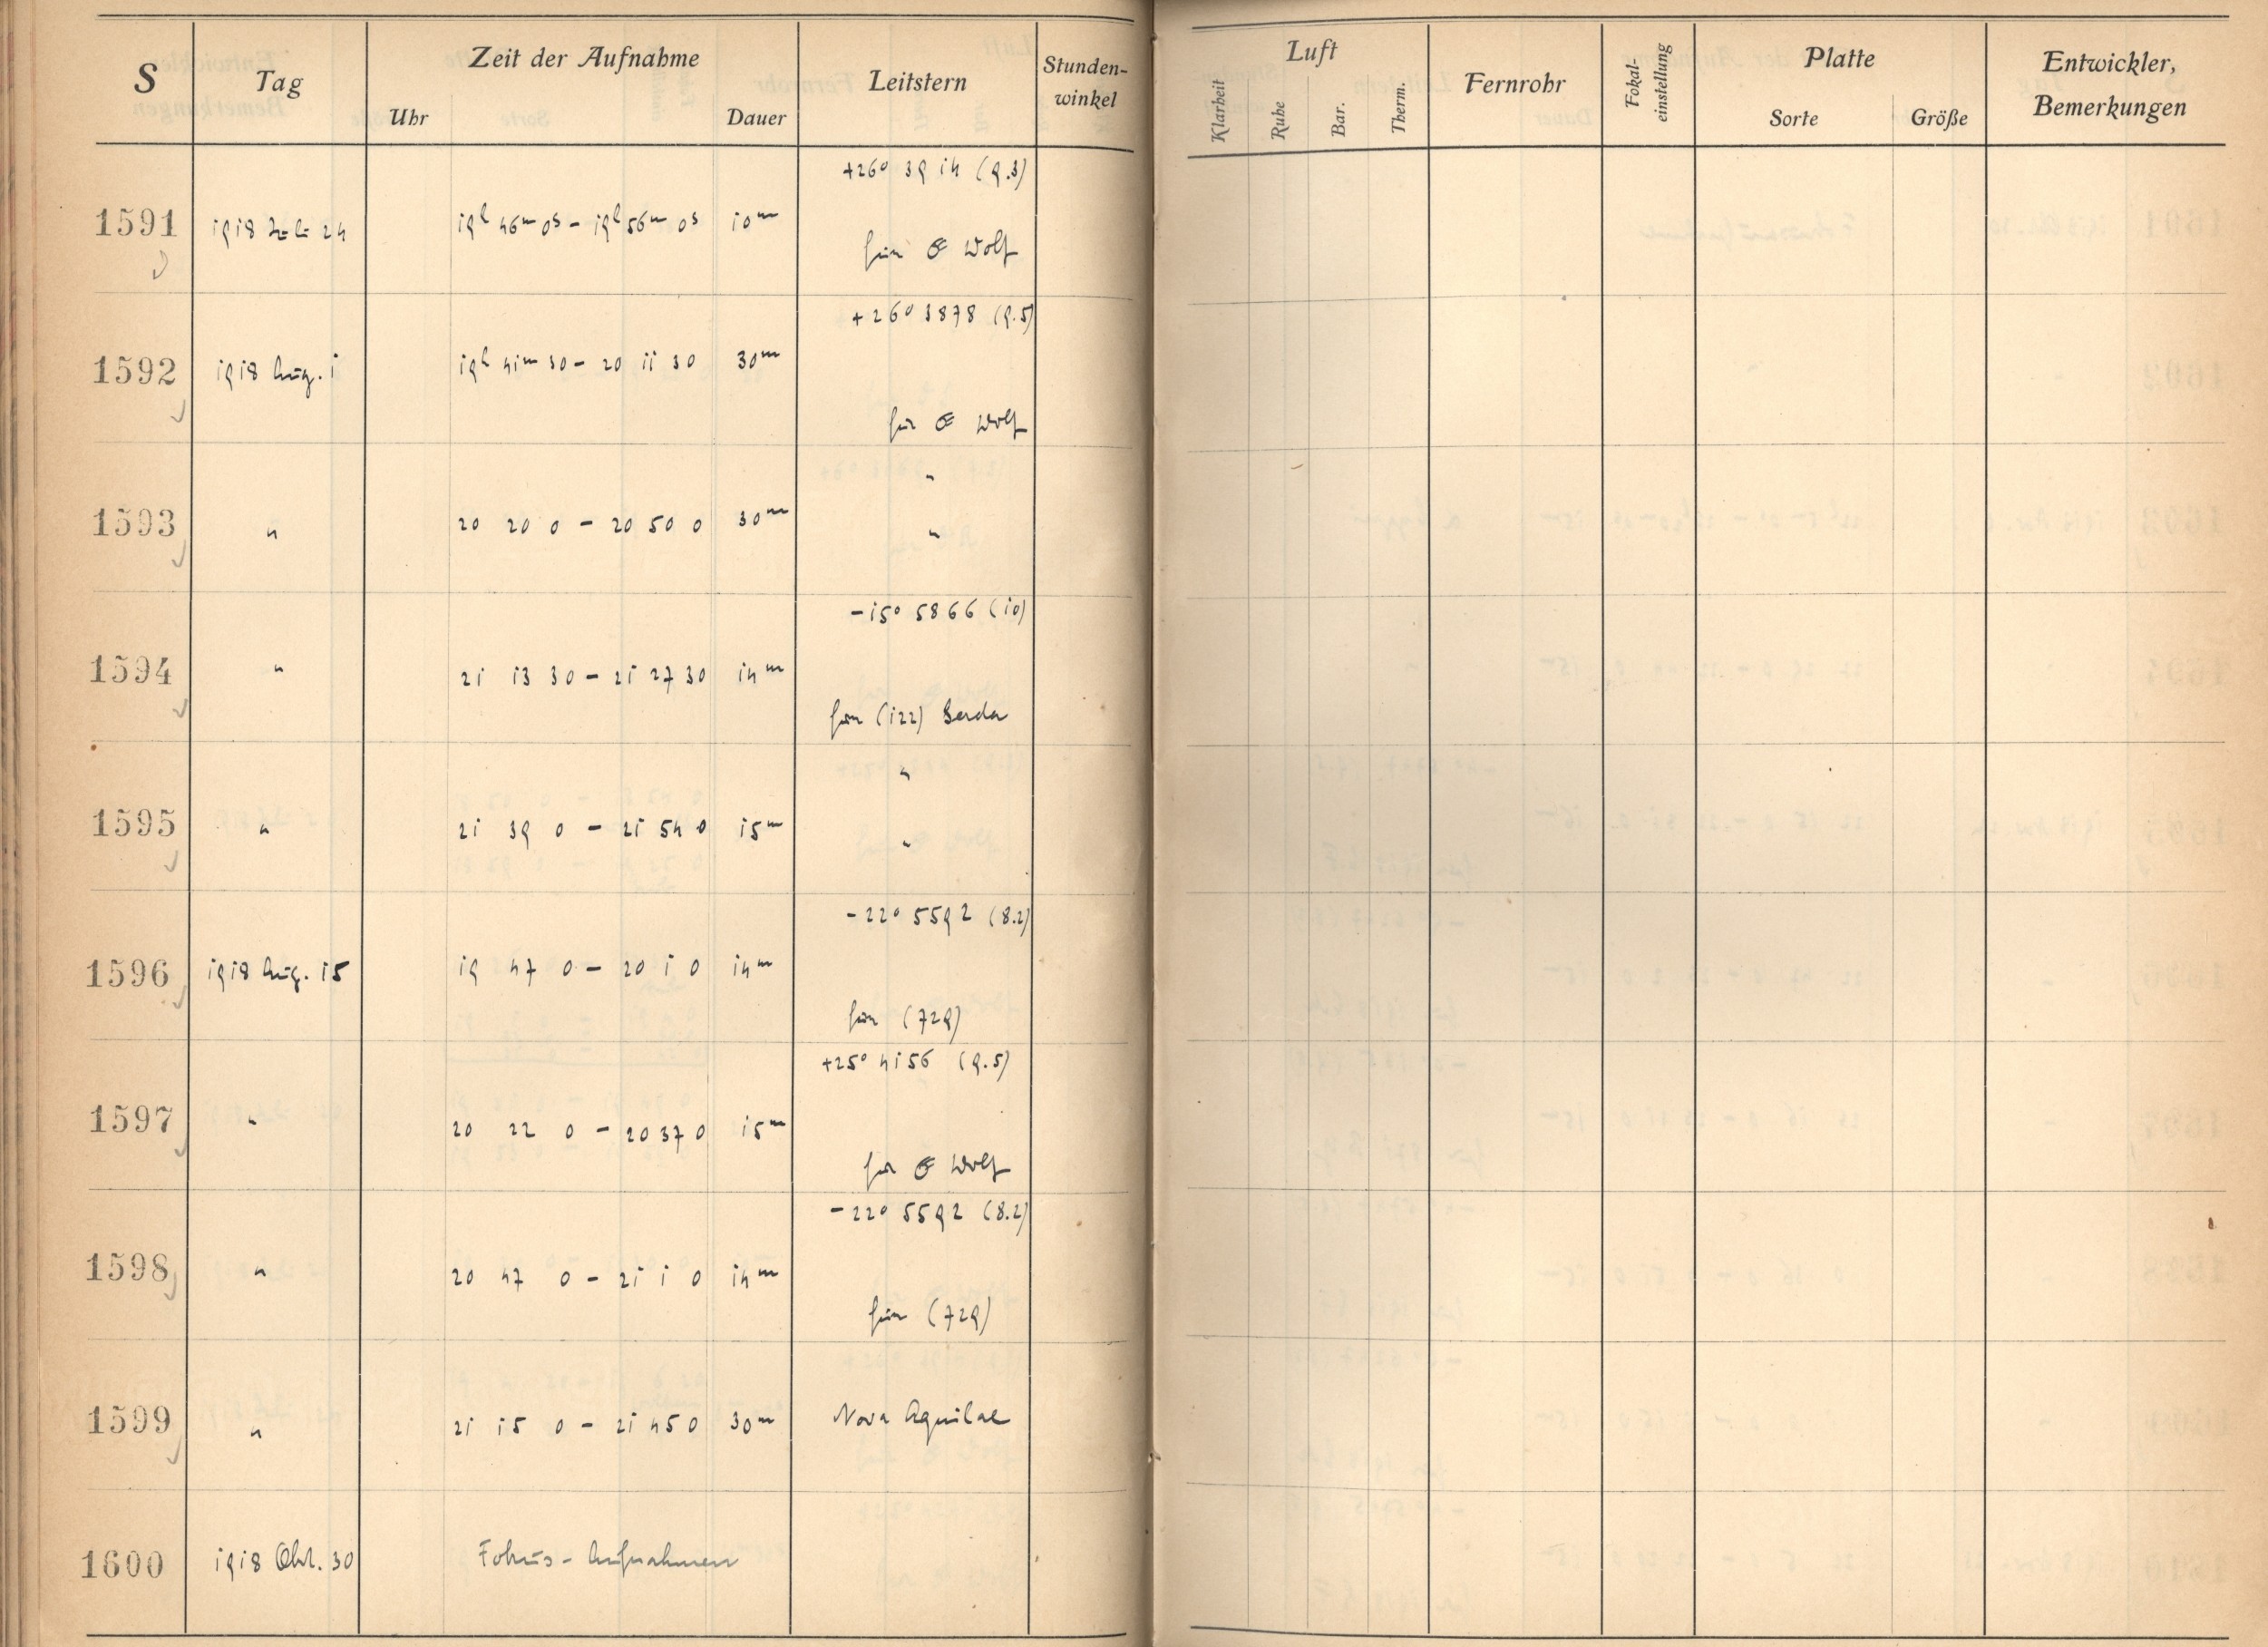 S Tag Zeit der Aufnahme Leitstern Stunden-winkel Luft Fernrohr Fokal-einstellung Platte Entwickler, Bemerkungen
Uhr Dauer Klarheit Ruhe Bar. Therm. Sorte Größe
+26° 3914 (9.3)
1591 1918 Juli 24 19h 46m 0s - 19h 56m 0s 10m
für Wolf
+26° 3878 (9.5)
1592 1918 Aug. 1 19h 41m 30 - 20 11 30 30m
für Wolf
"
1593 " 20 20 0 - 20 50 0 30m
"
-15° 5866 (10)
1594 " 21 13 30 - 21 27 30 14m
für (122) Gerda
"
1595 " 21 39 0 - 21 54 0 15m
"
-22° 5592 (8.2)
1596 1918 Aug. 15 19 47 0 - 20 1 0 14m
für (729)
+25° 4156 (9.5)
1597 " 20 22 0 - 20 37 0 15m
für Wolf
-22° 5592 (8.2)
1598 " 20 47 0 - 21 1 0 14m
für (729)
1599 " 21 15 0 - 21 45 0 30m Nova Aquilae
1600 1918 Okt. 30 Fokus-Aufnahmen